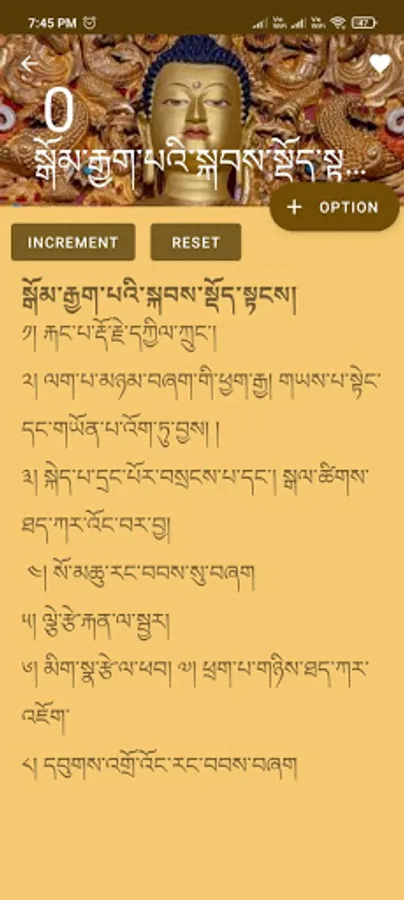 7:45 PM
47
0
སྒོམ་རྒྱག་པའི་སྐབས་སྡོད་སྟ...
+ OPTION
INCREMENT
RESET
སྒོམ་རྒྱག་པའི་སྐབས་སྡོད་སྟངས།
༡། རྐང་པ་རྡོ་རྗེ་དཀྱིལ་ཀྲུང་།
༢། ལག་པ་མཉམ་བཞག་གི་ཕྱག་རྒྱ། གཡས་པ་སྟེང་
དང་གཡོན་པ་འོག་ཏུ་བྱས། །
༣། སྐེད་པ་དྲང་པོར་བསྲངས་པ་དང་། སྒལ་ཚིགས་
ཐད་ཀར་འོང་བར་བྱ།
༤། སོ་མཆུ་རང་བབས་སུ་བཞག
༥། ལྕེ་རྩེ་རྐན་ལ་སྦྱར།
༦། མིག་སྣ་རྩེ་ལ་ཕབ། ༧། ཕྲག་པ་གཉིས་ཐད་ཀར་
འཇོག་
༨། དབུགས་འགྲོ་འོང་རང་བབས་བཞག